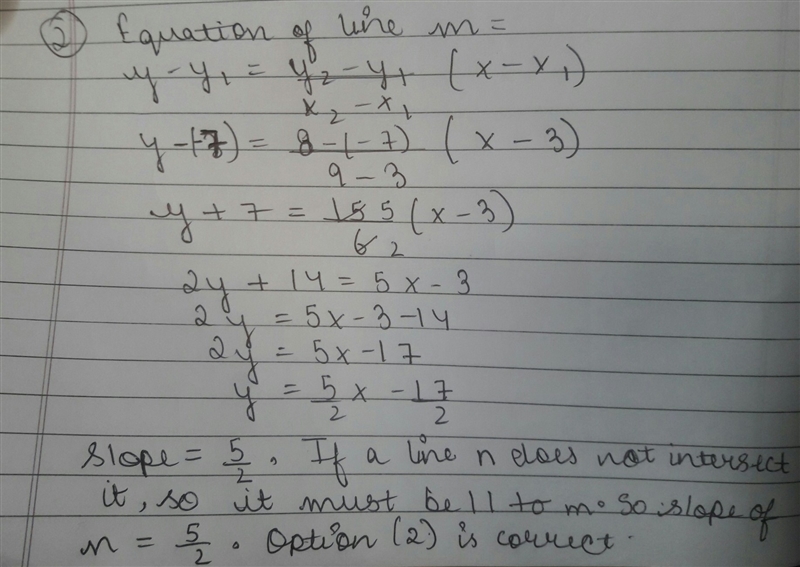 (2) Equation of line m =
y - y₁ = (y₂ - y₁)/(x₂ - x₁) (x - x₁)
y - (-7) = (8 - (-7))/(9 - 3) (x - 3)
y + 7 = 15 5/6 2 (x - 3)
2y + 14 = 5x - 3
2y = 5x - 3 - 14
2y = 5x - 17
y = 5/2 x - 17/2
Slope = 5/2. If a line n does not intersect
it, so it must be || to m. So slope of
n = 5/2. Option (2) is correct.